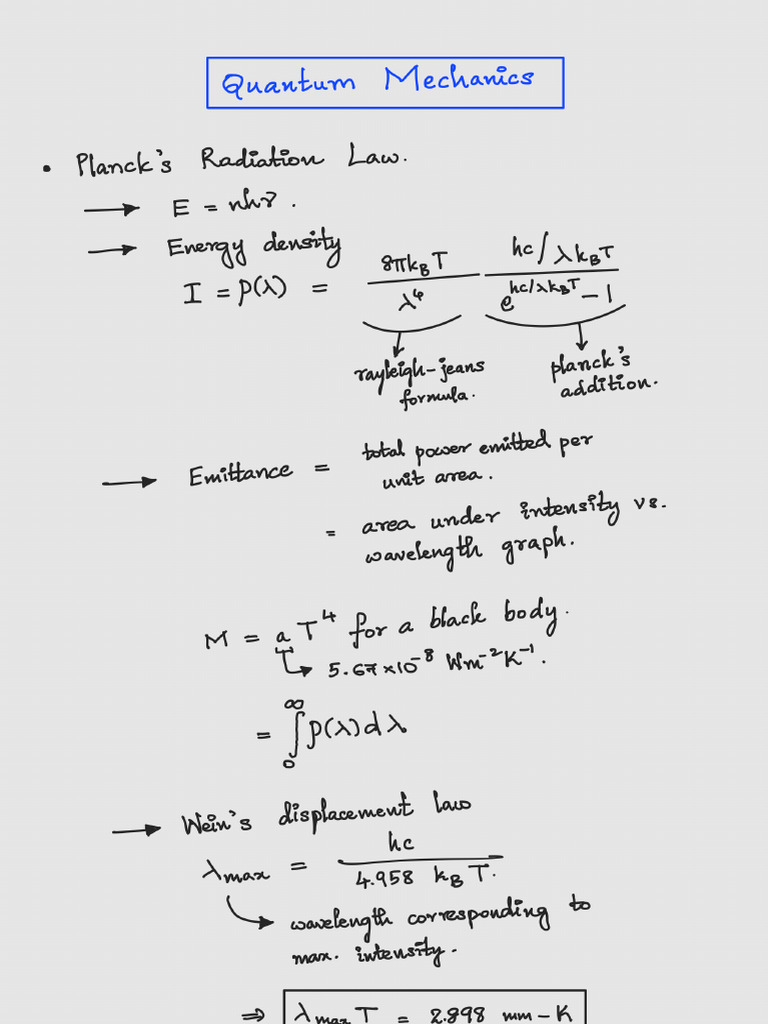 Quantum Mechanics
• Planck's Radiation Law.
→ E = nhν.
→ Energy density
I = ρ(λ) = 8πk_BT / λ⁴ · (hc/λk_BT) / (e^(hc/λk_BT) − 1)
rayleigh-jeans formula.
planck's addition.
→ Emittance = total power emitted per
unit area.
= area under intensity vs.
wavelength graph.
M = aT⁴ for a black body.
↳ 5.67×10⁻⁸ Wm⁻²K⁻¹.
= ∫₀^∞ ρ(λ)dλ
→ Wein's displacement law
λmax = hc / 4.958 k_BT.
↳ wavelength corresponding to
max. intensity.
⇒ λmaxT = 2.898 mm-K